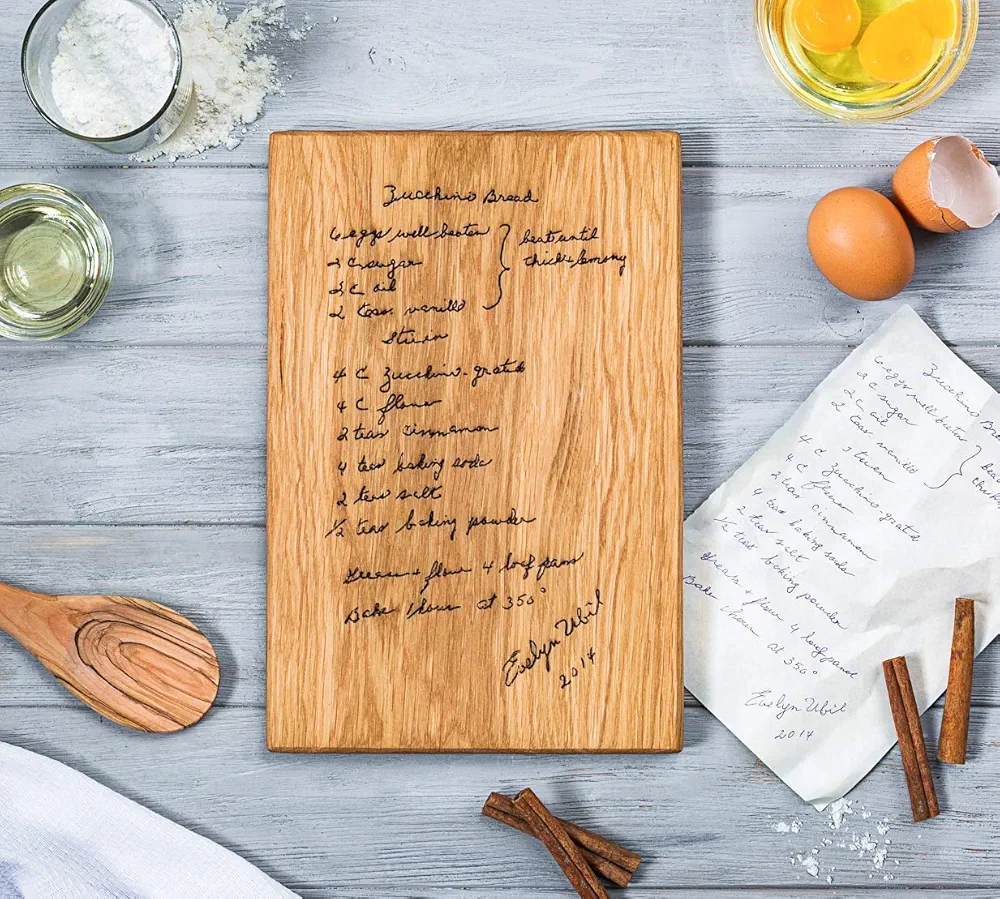 Zucchini Bread
6 eggs well beaten } beat until
2 C sugar thick & lemony
2 C oil
2 teas vanilla
Stir in
4 C Zucchini-grated
4 C flour
2 teas cinnamon
4 teas baking soda
2 teas salt
1/2 teas baking powder
Grease + flour 4 loaf pans
Bake 1 hour at 350°
Evelyn Ubil
2014
Zucchini Bre
6 eggs well beaten } beat
2 C sugar thick
2 C oil
2 teas vanilla
Stir in
4 C Zucchini-grated
4 C flour
2 teas cinnamon
4 teas baking soda
2 teas salt
1/2 teas baking powder
Grease + flour 4 loaf pans
Bake 1 hour at 350°
Evelyn Ubil
2014